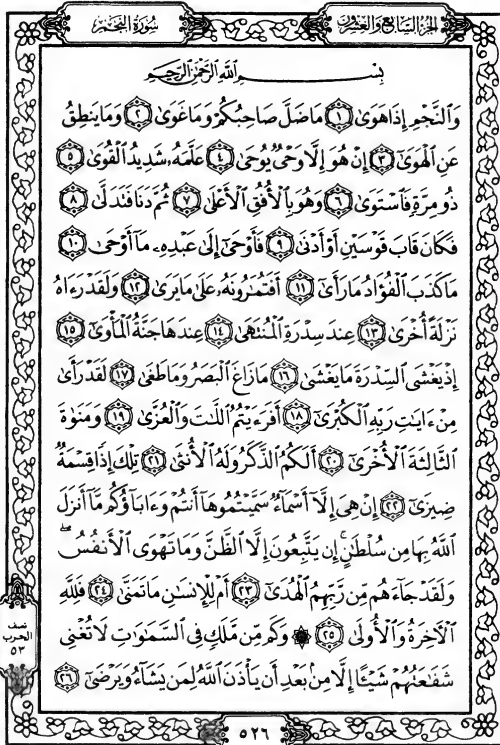 الجزء السابع والعشرون
سورة النجم
بِسْمِ اللَّهِ الرَّحْمَٰنِ الرَّحِيمِ
وَالنَّجْمِ إِذَا هَوَىٰ ١ مَا ضَلَّ صَاحِبُكُمْ وَمَا غَوَىٰ ٢ وَمَا يَنطِقُ
عَنِ الْهَوَىٰ ٣ إِنْ هُوَ إِلَّا وَحْيٌ يُوحَىٰ ٤ عَلَّمَهُ شَدِيدُ الْقُوَىٰ ٥
ذُو مِرَّةٍ فَاسْتَوَىٰ ٦ وَهُوَ بِالْأُفُقِ الْأَعْلَىٰ ٧ ثُمَّ دَنَا فَتَدَلَّىٰ ٨
فَكَانَ قَابَ قَوْسَيْنِ أَوْ أَدْنَىٰ ٩ فَأَوْحَىٰ إِلَىٰ عَبْدِهِۦ مَا أَوْحَىٰ ١٠
مَا كَذَبَ الْفُؤَادُ مَا رَأَىٰ ١١ أَفَتُمَٰرُونَهُۥ عَلَىٰ مَا يَرَىٰ ١٢ وَلَقَدْ رَءَاهُ
نَزْلَةً أُخْرَىٰ ١٣ عِندَ سِدْرَةِ الْمُنتَهَىٰ ١٤ عِندَهَا جَنَّةُ الْمَأْوَىٰ ١٥
إِذْ يَغْشَى السِّدْرَةَ مَا يَغْشَىٰ ١٦ مَا زَاغَ الْبَصَرُ وَمَا طَغَىٰ ١٧ لَقَدْ رَأَىٰ
مِنْ ءَايَٰتِ رَبِّهِ الْكُبْرَىٰ ١٨ أَفَرَءَيْتُمُ اللَّٰتَ وَالْعُزَّىٰ ١٩ وَمَنَوٰةَ
الثَّالِثَةَ الْأُخْرَىٰ ٢٠ أَلَكُمُ الذَّكَرُ وَلَهُ الْأُنثَىٰ ٢١ تِلْكَ إِذًا قِسْمَةٌ
ضِيزَىٰ ٢٢ إِنْ هِيَ إِلَّا أَسْمَاءٌ سَمَّيْتُمُوهَا أَنتُمْ وَءَابَاؤُكُم مَّا أَنزَلَ
اللَّهُ بِهَا مِن سُلْطَٰنٍ إِن يَتَّبِعُونَ إِلَّا الظَّنَّ وَمَا تَهْوَى الْأَنفُسُ ۖ
وَلَقَدْ جَاءَهُم مِّن رَّبِّهِمُ الْهُدَىٰ ٢٣ أَمْ لِلْإِنسَٰنِ مَا تَمَنَّىٰ ٢٤ فَلِلَّهِ
الْءَاخِرَةُ وَالْأُولَىٰ ٢٥ ۞ وَكَم مِّن مَّلَكٍ فِي السَّمَٰوَٰتِ لَا تُغْنِي
شَفَٰعَتُهُمْ شَيْـًٔا إِلَّا مِن بَعْدِ أَن يَأْذَنَ اللَّهُ لِمَن يَشَاءُ وَيَرْضَىٰ ٢٦
نصف
الحزب
٥٣
٥٢٦